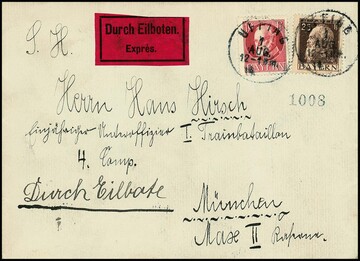 Durch Eilboten.
Exprès.
S. H.
UTTING
AUG.
BAYERN
1008
Herrn Hans Hirsch
Einjähriger Unteroffizier I Trainbataillon
4. Comp.
Durch Eilbote
München
Max II Kaserne.